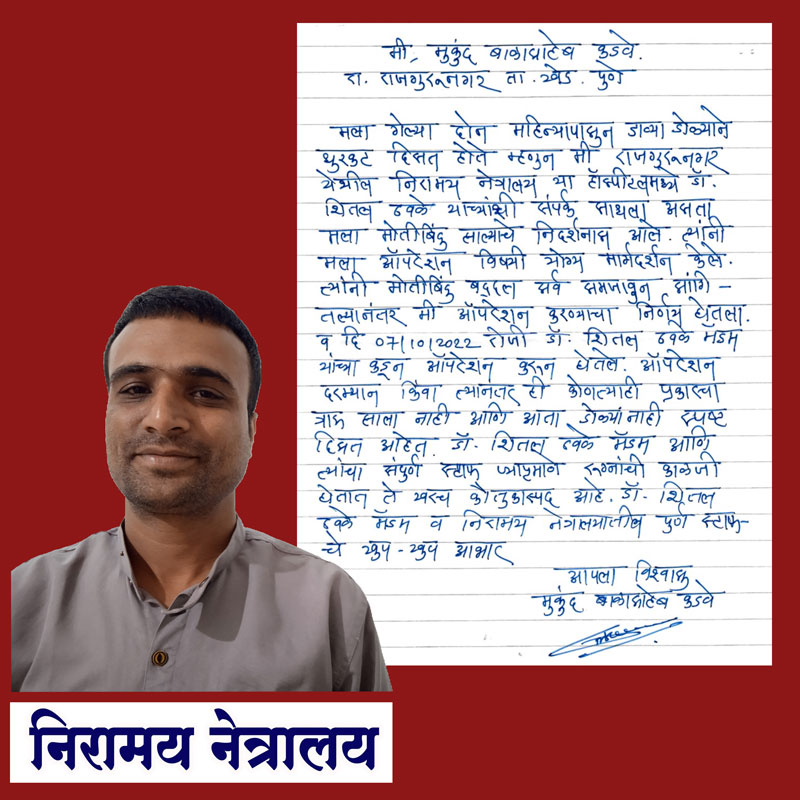 मी, मुकुंद बाळासाहेब कडवे.
रा. राजगुरूनगर ता. खेड. पुणे
मला गेल्या दोन महिन्यापासुन डाव्या डोळ्याने
धुरकट दिसत होते म्हणुन मी राजगुरूनगर
येथील निरामय नेत्रालय या हॉस्पीटलमध्ये डॉ.
शितल ढवळे यांच्याशी संपर्क साधला असता
मला मोतीबिंदु झाल्याचे निदर्शनास आले. त्यांनी
मला ऑपरेशन विषयी योग्य मार्गदर्शन केले.
त्यांनी मोतीबिंदु बद्दल सर्व समजावुन सांगि-
तल्यानंतर मी ऑपरेशन करण्याचा निर्णय घेतला.
व दि 07/10/2022 रोजी डॉ. शितल ढवळे मॅडम
यांच्या कडून ऑपरेशन करून घेतले. ऑपरेशन
दरम्यान किंवा त्यानंतर ही कोणत्याही प्रकारचा
त्रास झाला नाही आणि आता डोळ्यांनाही स्पष्ट
दिसत आहेत. डॉ. शितल ढवळे मॅडम आणि
त्यांचा संपुर्ण स्टाफ ज्याप्रमाणे रुग्नांची काळजी
घेतात ते खरच कौतुकास्पद आहे. डॉ. शितल
ढवळे मॅडम व निरामय नेत्रालयातील पुर्ण स्टाफ-
चे खुप-खुप आभार
आपला विश्वासु
मुकुंद बाळासाहेब कडवे
निरामय नेत्रालय